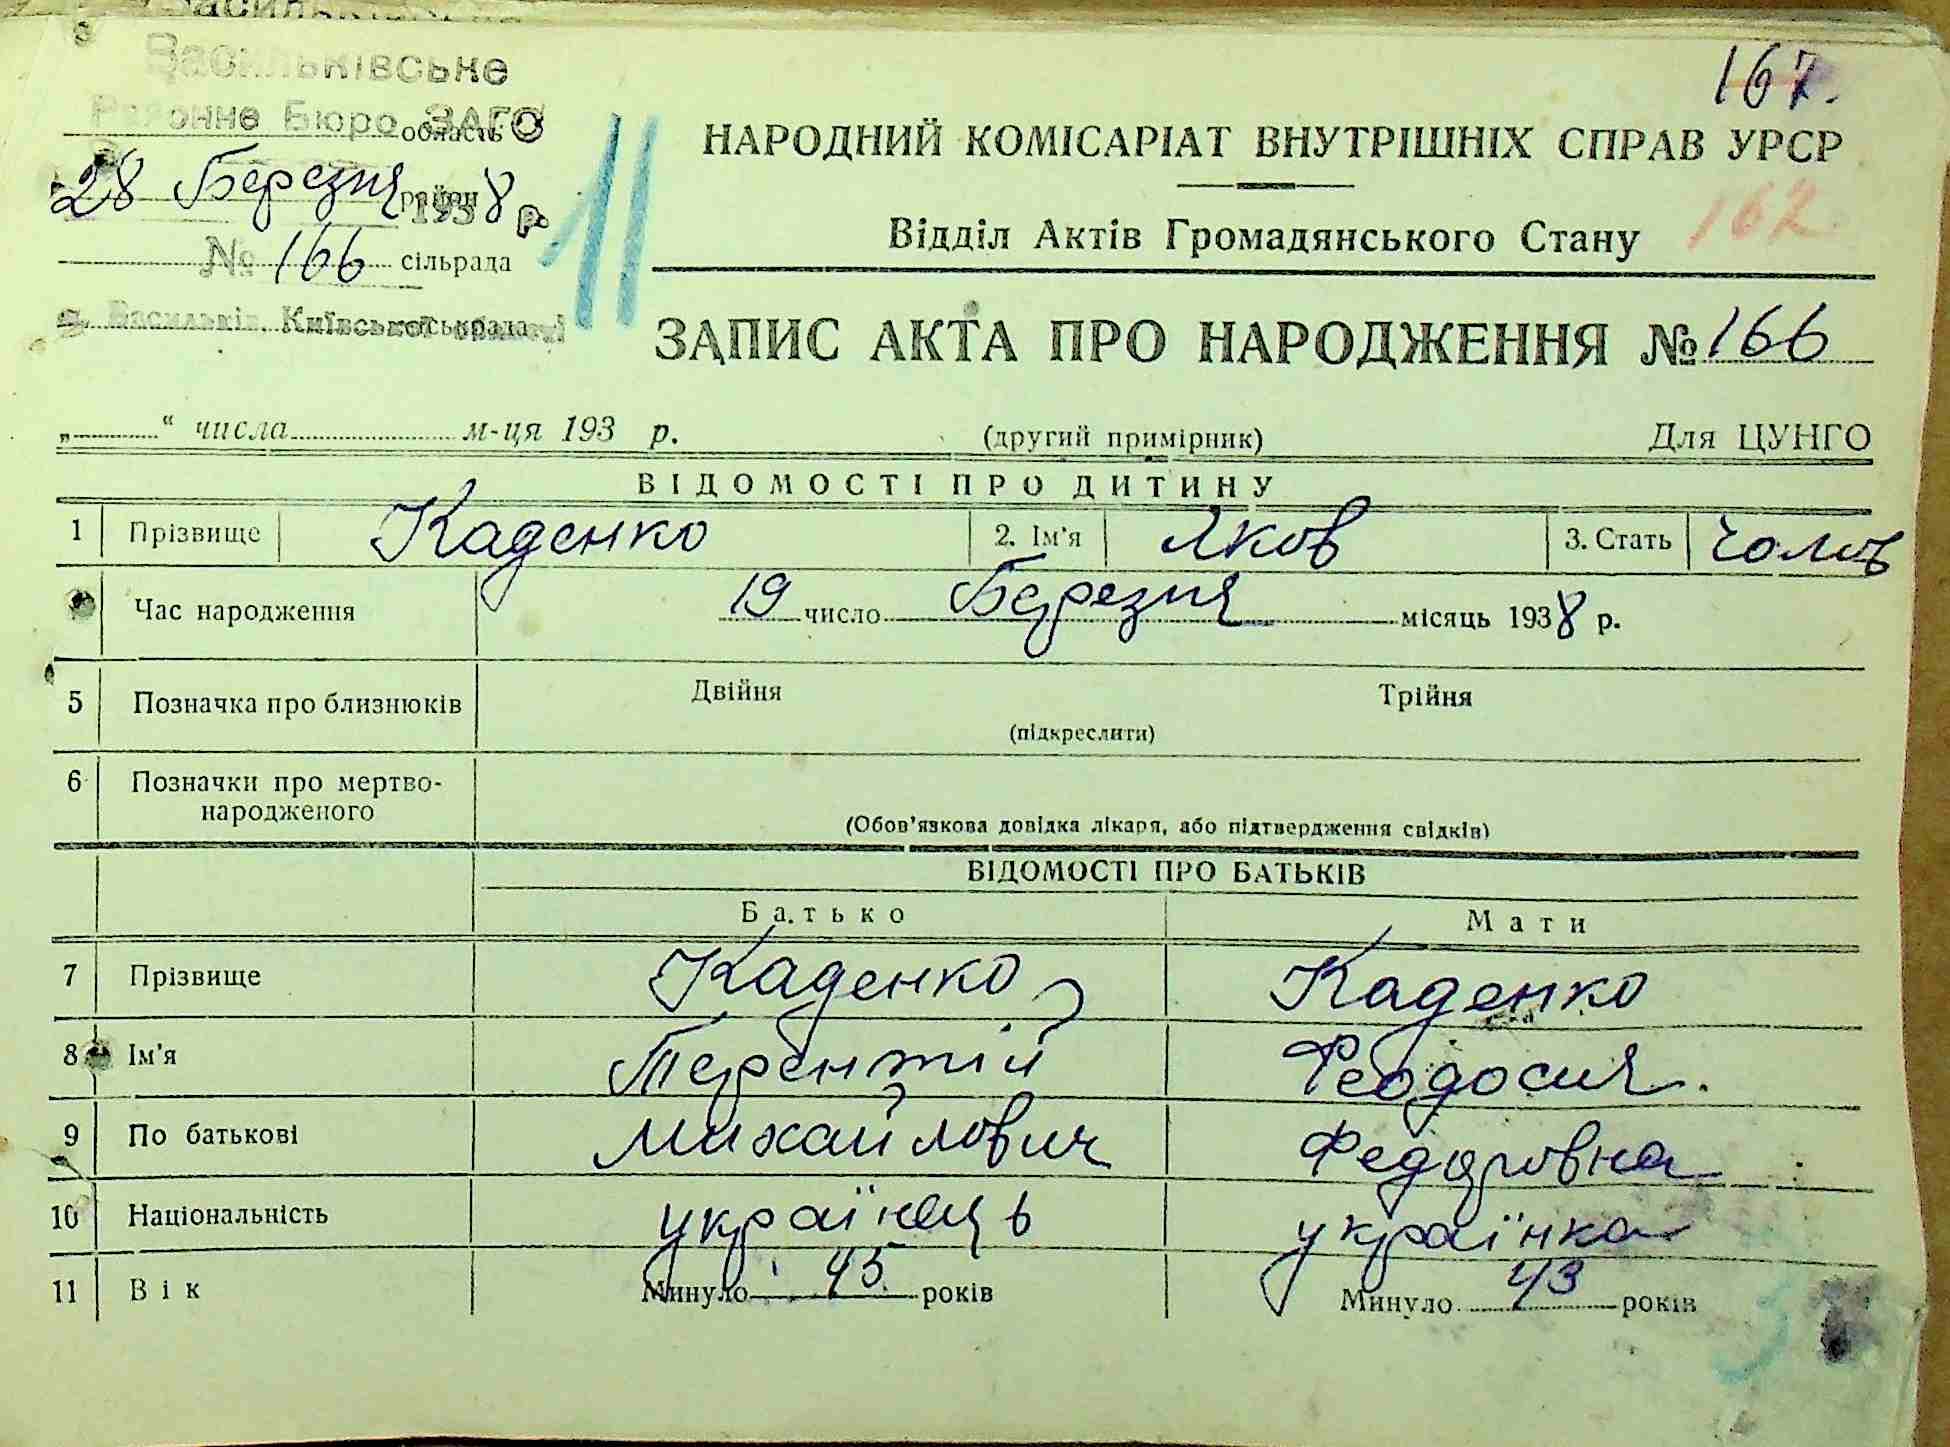 Васильківське
Районне Бюро ЗАГС
область
28 Березня 1938 р.
район
№ 166 сільрада
м. Васильків, Київської області
міськрада
11
167.
НАРОДНИЙ КОМІСАРІАТ ВНУТРІШНІХ СПРАВ УРСР
Відділ Актів Громадянського Стану 162
ЗАПИС АКТА ПРО НАРОДЖЕННЯ № 166
„ “ числа м-ця 193 р. (другий примірник) Для ЦУНГО
ВІДОМОСТІ ПРО ДИТИНУ
1 Прізвище Каденко 2. Ім'я Яков 3. Стать чолов
Час народження 19 число Березня місяць 1938 р.
5 Позначка про близнюків Двійня Трійня
(підкреслити)
6 Позначки про мертво-
народженого
(Обов'язкова довідка лікаря, або підтвердження свідків)
ВІДОМОСТІ ПРО БАТЬКІВ
Батько Мати
7 Прізвище Каденко Каденко
8 Ім'я Терентій Феодосия.
9 По батькові Михайлович Федоровна
10 Національність українець українка
11 Вік Минуло 45 років Минуло 43 років